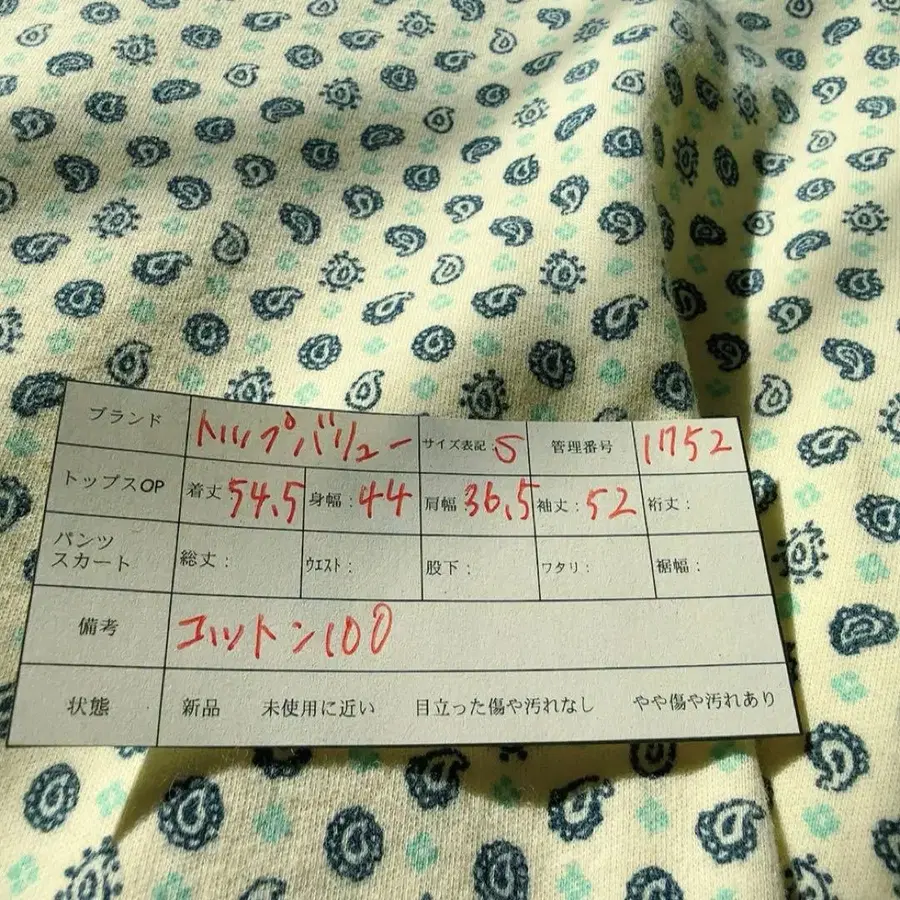 ブランド トップバリュー サイズ表記：S 管理番号 1752
トップスOP 着丈 54.5 身幅：44 肩幅 36.5 袖丈：52 裄丈：
パンツ
スカート 総丈： ウエスト： 股下： ワタリ： 裾幅：
備考 コットン100
状態 新品 未使用に近い 目立った傷や汚れなし やや傷や汚れあり